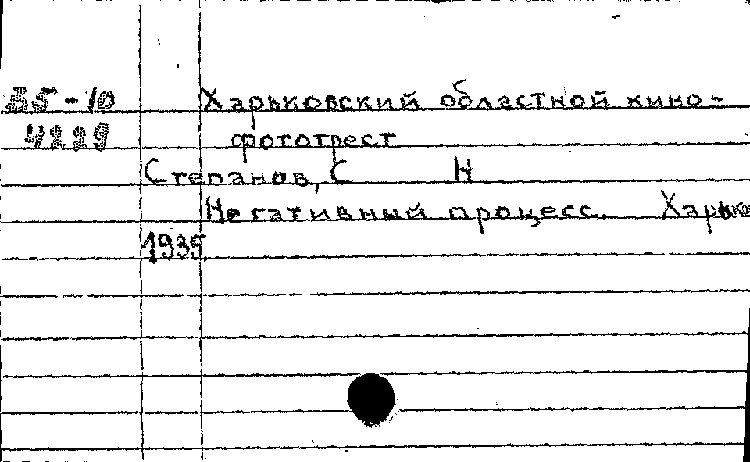 Б5-10 Харьковский областной кино-
4229 фототрест
Степанов, С Н
Негативный процесс. Харько
1935